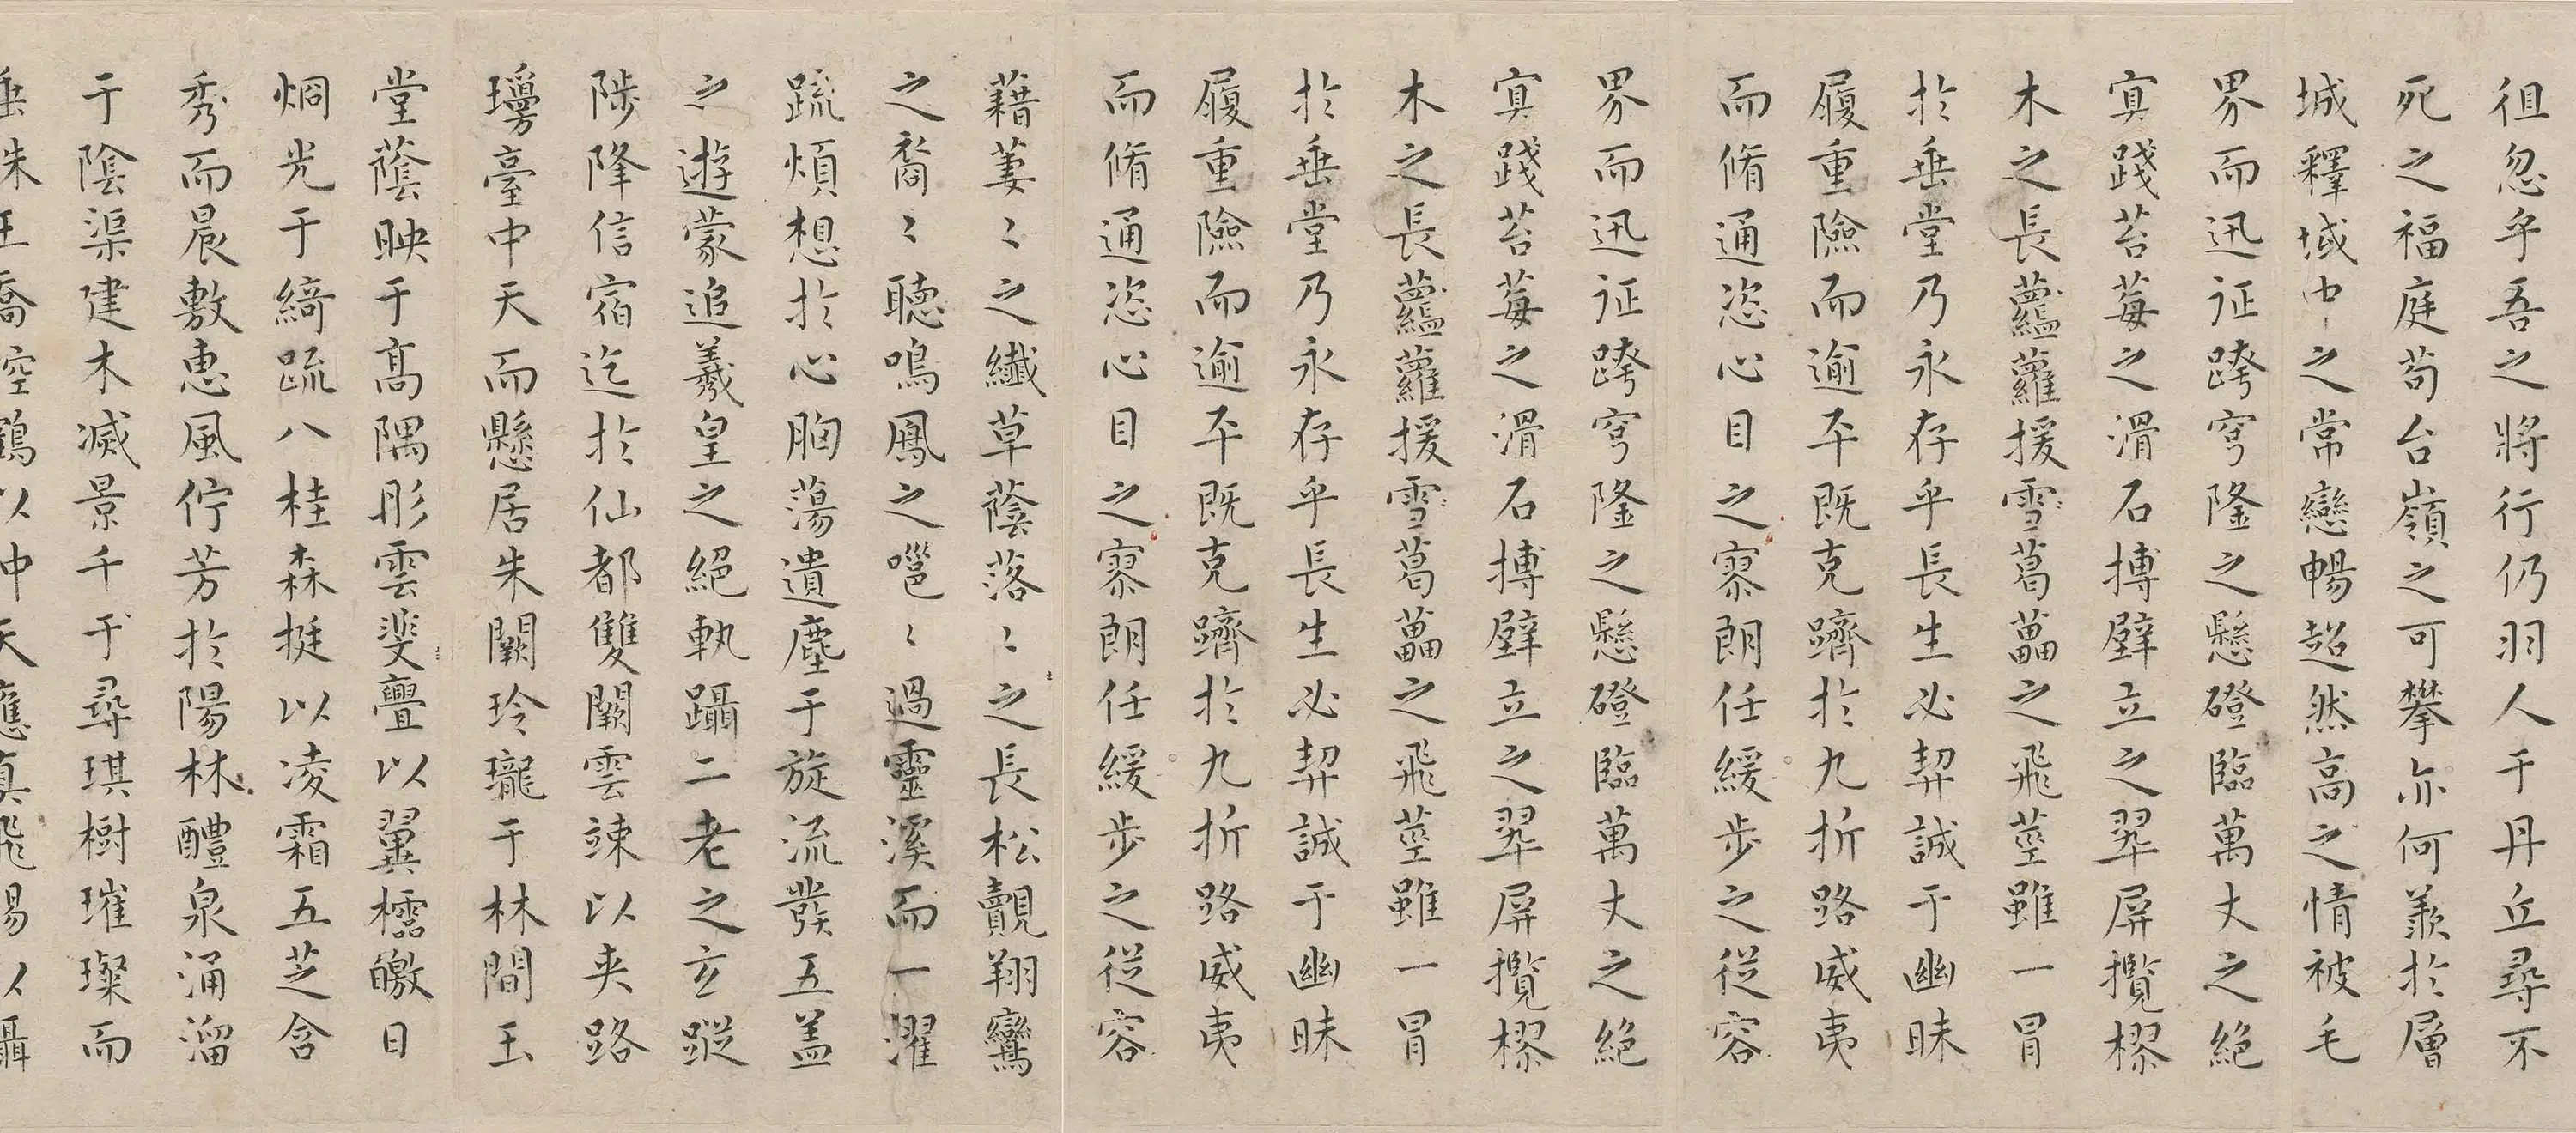 徂忽乎吾之將行仍羽人于丹丘尋不
死之福庭苟台嶺之可攀亦何羨於層
城釋域中之常戀暢超然高之情被毛
界而迅征跨穹隆之懸磴臨萬丈之絕
㝠踐苔莓之滑石搏壁立之翠屏攬樛
木之長蘿援雪葛藟之飛莖雖一冒
於垂堂乃永存乎長生必契誠于幽昧
履重險而逾平既克躋於九折路威夷
而脩通恣心目之寥朗任緩步之從容
界而迅征跨穹隆之懸磴臨萬丈之絕
㝠踐苔莓之滑石搏壁立之翠屏攬樛
木之長蘿援雪葛藟之飛莖雖一冒
於垂堂乃永存乎長生必契誠于幽昧
履重險而逾平既克躋於九折路威夷
而脩通恣心目之寥朗任緩步之從容
藉萋〻之纖草蔭落〻之長松覿翔鸞
之裔〻聽鳴鳳之嗈〻過靈溪而一濯
疏煩想於心胸蕩遺塵于旋流發五盖
之遊蒙追羲皇之絕軌躡二老之玄蹤
陟降信宿迄於仙都雙闕雲竦以夾路
瓊臺中天而懸居朱闕玲瓏于林間玉
堂蔭映于高隅彤雲斐亹以翼櫺皦日
烱光于綺疏八桂森挺以凌霜五芝含
秀而晨敷惠風佇芳於陽林醴泉涌溜
于陰渠建木滅景千于尋琪樹璀璨而
垂珠王喬控鶴以中天應真飛錫以躡